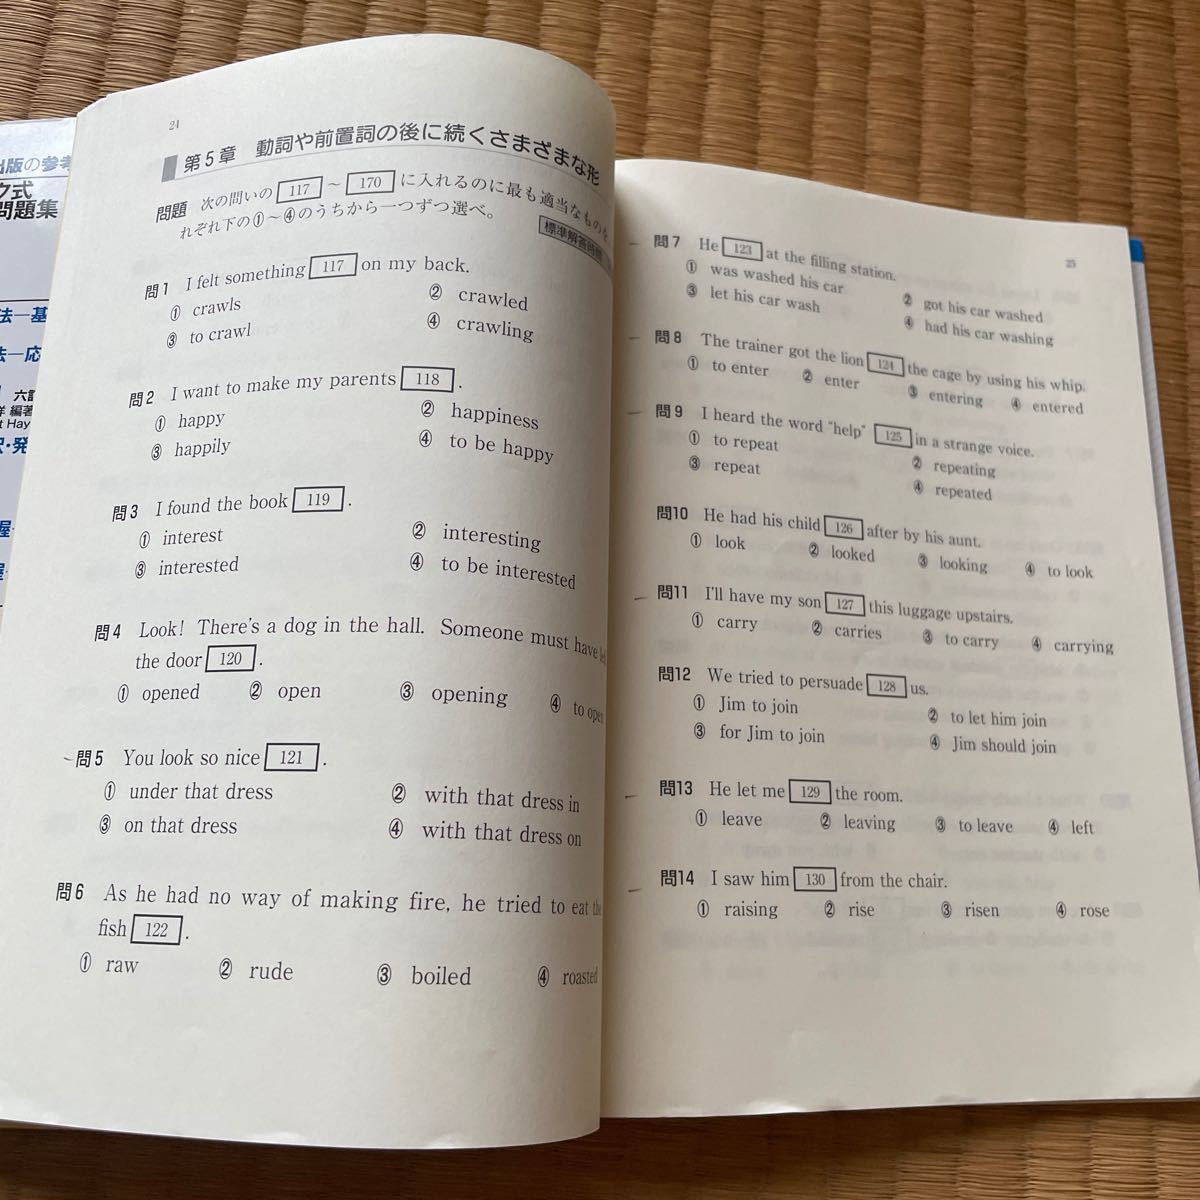 出版の参考
ク式
問題集
法―基
法―応
六訂
洋 編著
t Hay
訳・発
握
握
24
第5章 動詞や前置詞の後に続くさまざまな形
問題 次の問いの 117 ～ 170 に入れるのに最も適当なものを、
れぞれ下の①～④のうちから一つずつ選べ。
標準解答時間
問1 I felt something 117 on my back.
① crawls ② crawled
③ to crawl ④ crawling
問2 I want to make my parents 118 .
① happy ② happiness
③ happily ④ to be happy
問3 I found the book 119 .
① interest ② interesting
③ interested ④ to be interested
問4 Look! There's a dog in the hall. Someone must have
the door 120 .
① opened ② open ③ opening ④ to open
問5 You look so nice 121 .
① under that dress ② with that dress in
③ on that dress ④ with that dress on
問6 As he had no way of making fire, he tried to eat the
fish 122 .
① raw ② rude ③ boiled ④ roasted
25
問7 He 123 at the filling station.
① was washed his car ② got his car washed
③ let his car wash ④ had his car washing
問8 The trainer got the lion 124 the cage by using his whip.
① to enter ② enter ③ entering ④ entered
問9 I heard the word "help" 125 in a strange voice.
① to repeat ② repeating
③ repeat ④ repeated
問10 He had his child 126 after by his aunt.
① look ② looked ③ looking ④ to look
問11 I'll have my son 127 this luggage upstairs.
① carry ② carries ③ to carry ④ carrying
問12 We tried to persuade 128 us.
① Jim to join ② to let him join
③ for Jim to join ④ Jim should join
問13 He let me 129 the room.
① leave ② leaving ③ to leave ④ left
問14 I saw him 130 from the chair.
① raising ② rise ③ risen ④ rose